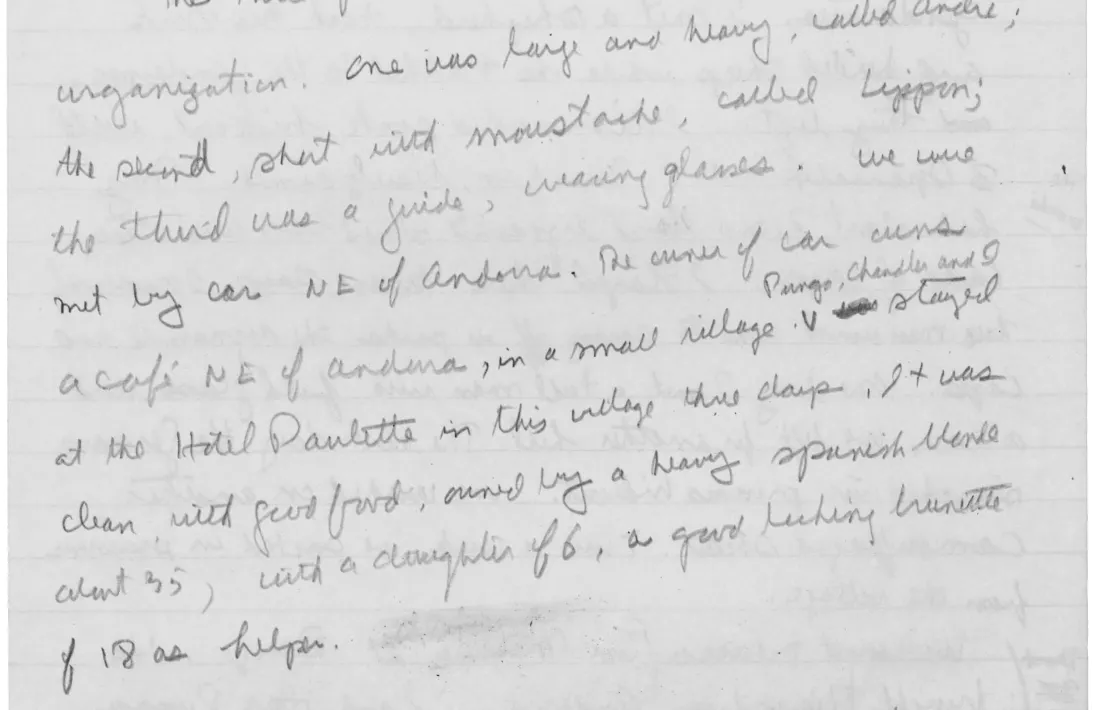 organization. One was large and heavy, called Andre;
the second, short with moustache, called Lippin;
the third was a guide, wearing glasses. We were
met by car NE of Andorra. The owner of car owns
Pungo, Chandler and I
a café NE of Andorra, in a small village. V stayed
at the Hotel Paulette in this village three days. It was
clean with good food, owned by a heavy spanish blonde
about 35, with a daughter of 6, a good looking brunette
of 18 as helper.